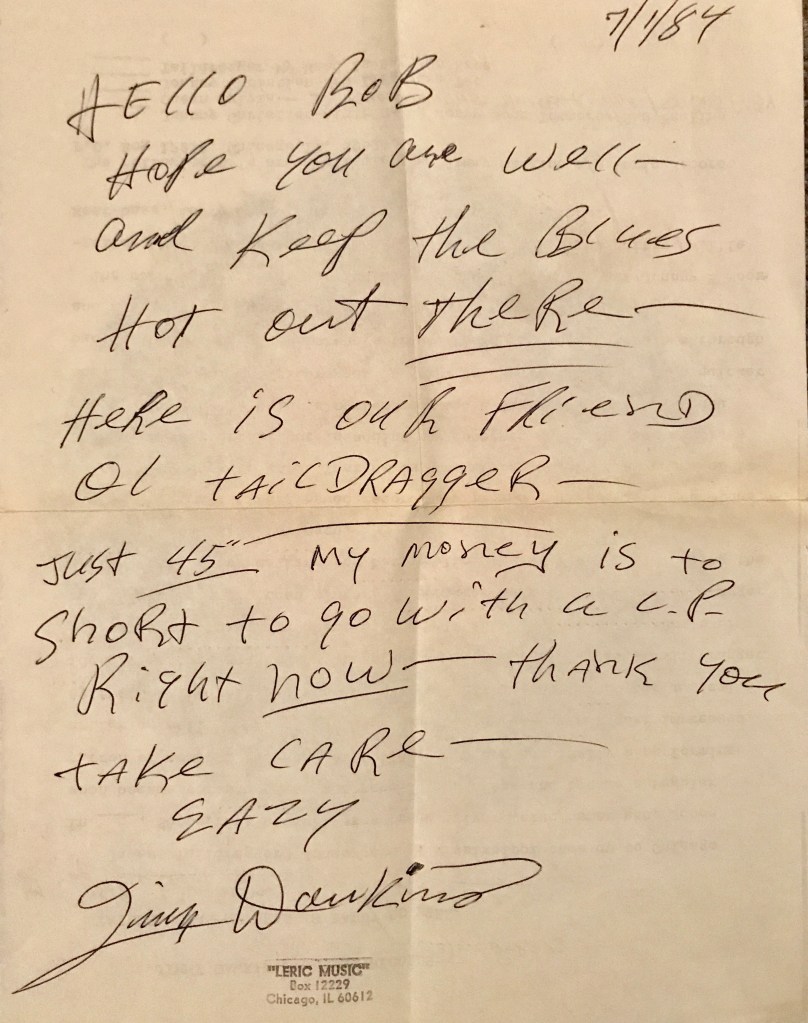 7/1/84
HELLO BOB
HOPe you are well—
and Keep the Blues
Hot out theRe—
HeRe is OUR FRienD
Ol tAilDRAggeR—
Just 45" My money is to
ShoRt to go with a L.P.
Right now— thank you
tAKe CARe—
EAZY
Jimmy Dawkins
"LERIC MUSIC"
Box 12229
Chicago, IL 60612